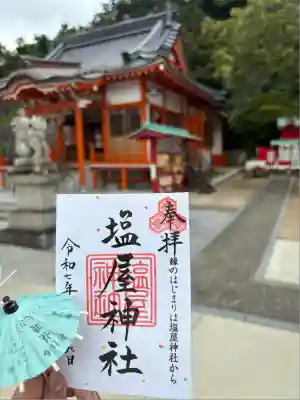 奉拝
縁のはじまりは塩屋神社から
塩屋神社
令和七年
日